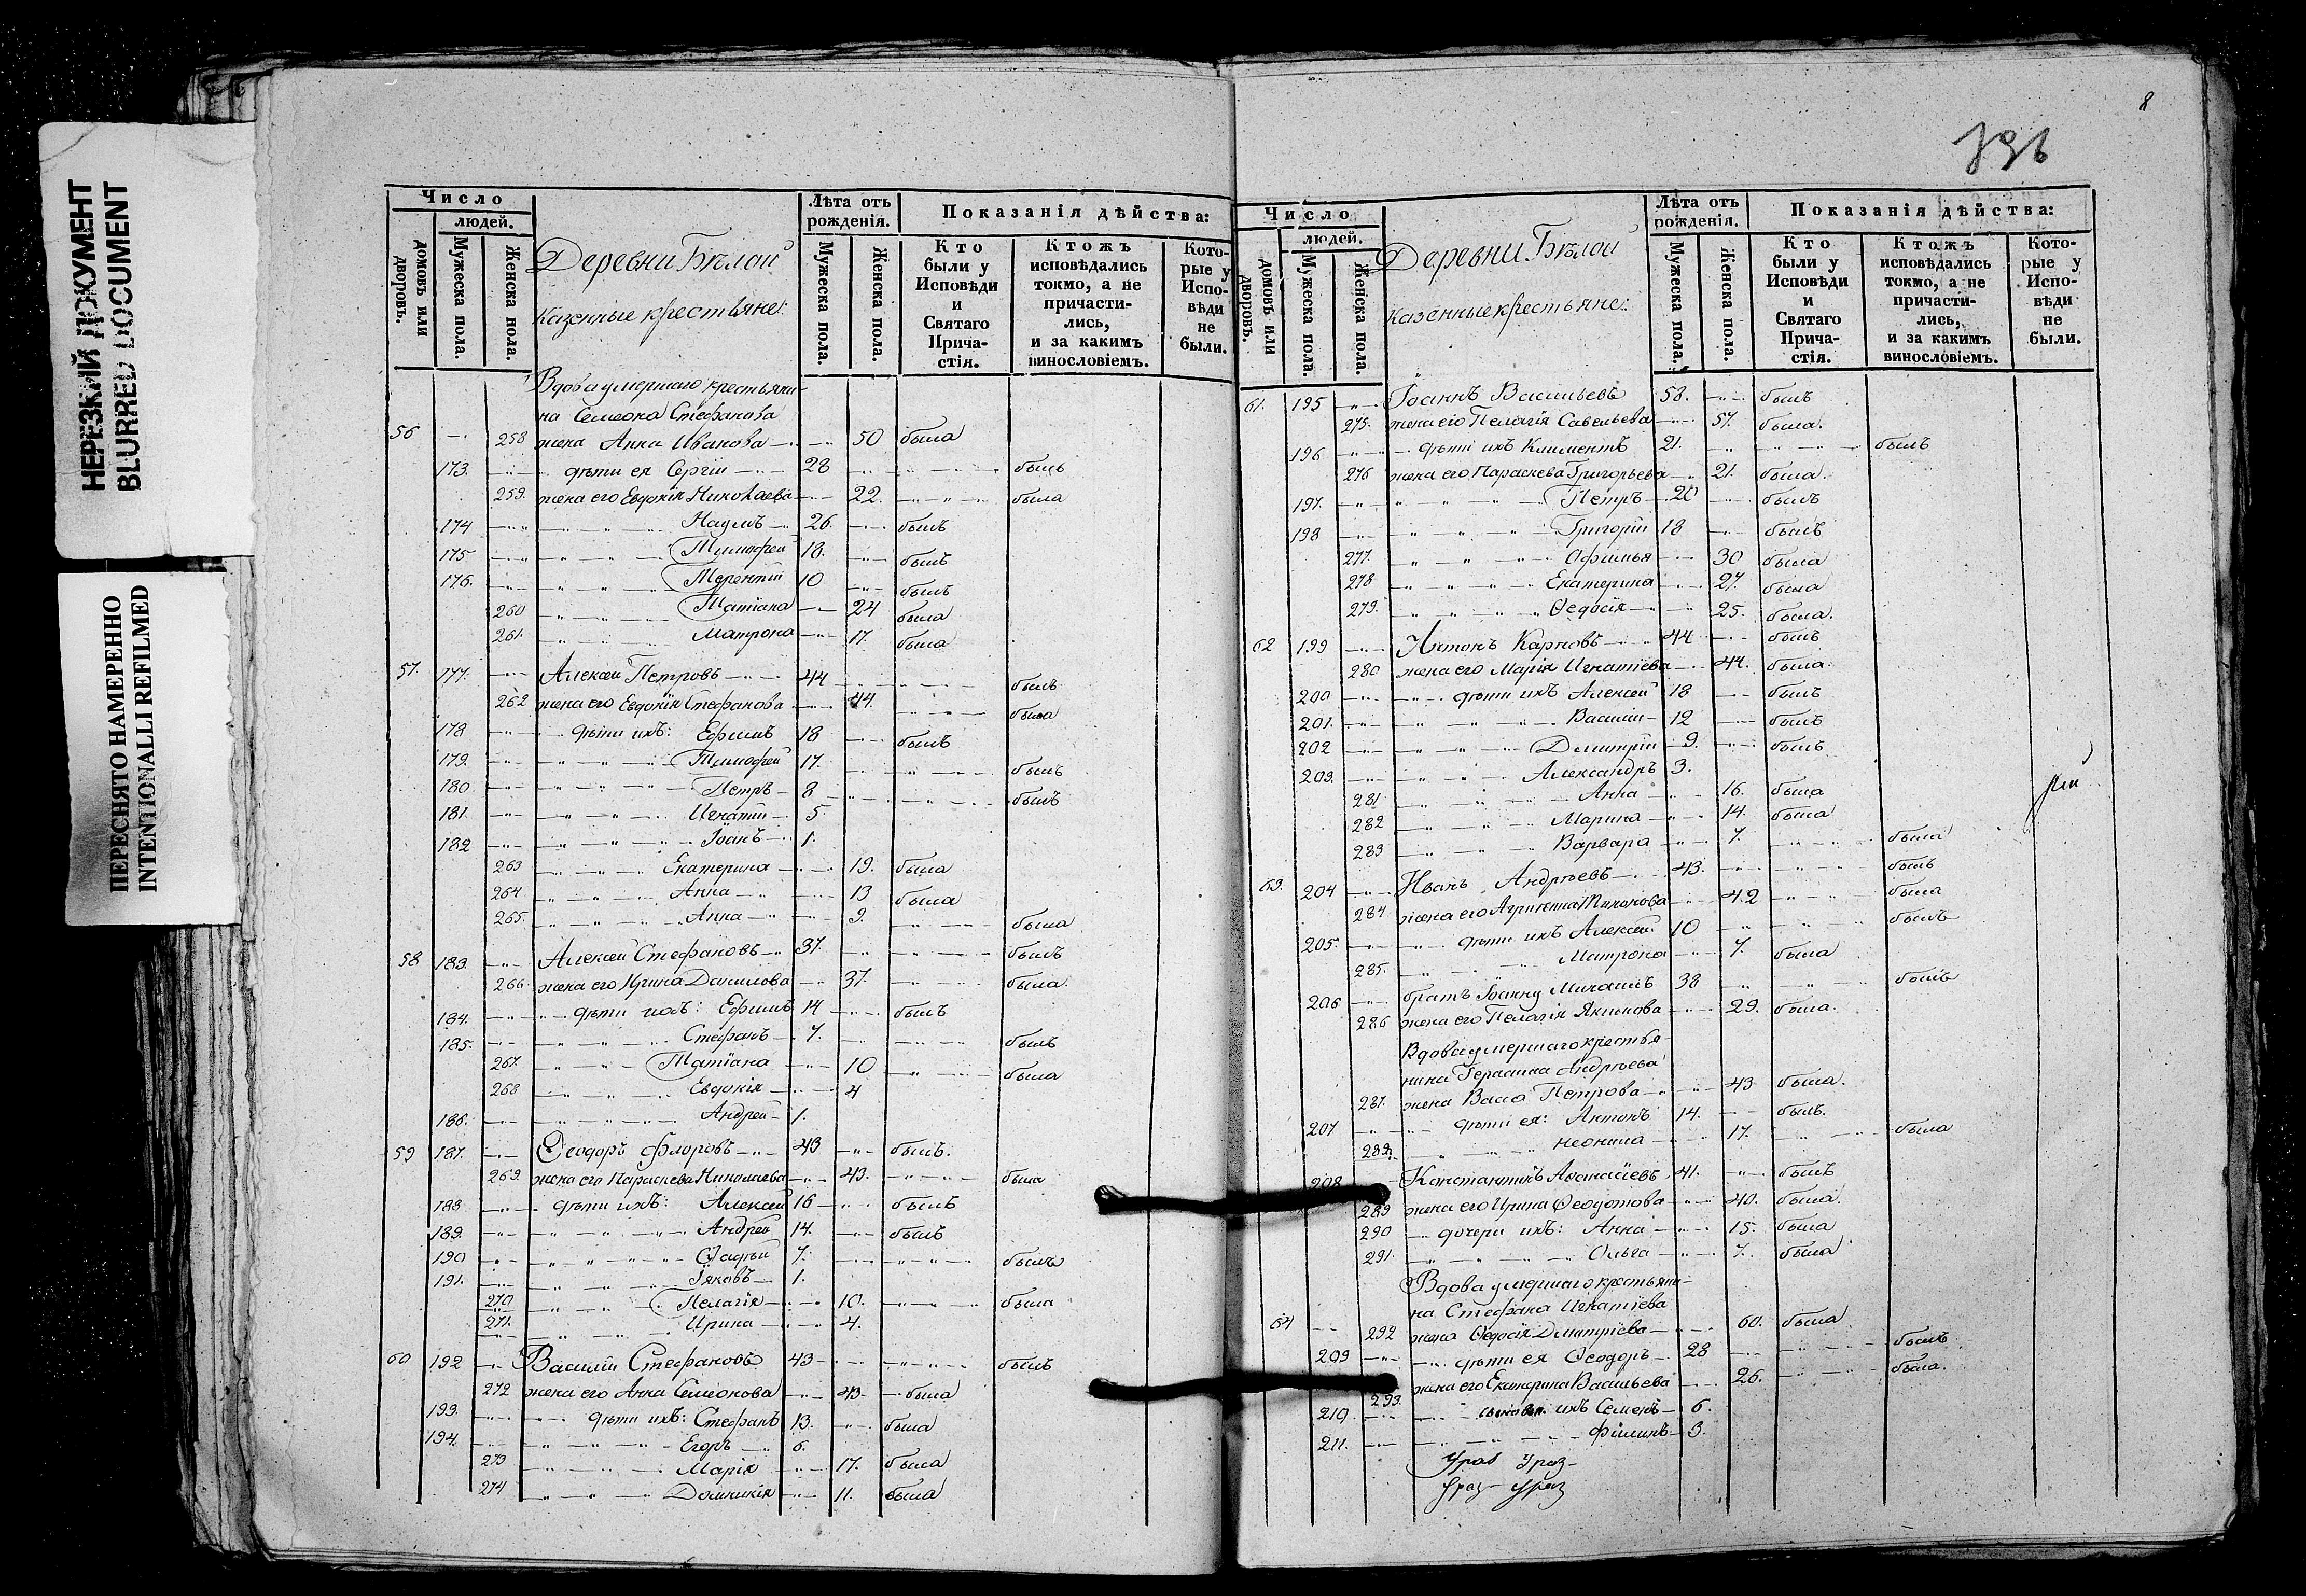 НЕРЕЗКИЙ ДОКУМЕНТ
BLURRED DOCUMENT
ПЕРЕСНЯТО НАМЕРЕННО
INTENTIONALLI REFILMED
Число
людей.
домовъ или дворовъ.
Мужеска пола.
Женска пола.
Деревни Бѣлой
казенные крестьяне:
Лѣта отъ рожденія.
Мужеска пола.
Женска пола.
Показанія дѣйства:
Кто были у Исповѣди и Святаго Прича-стія.
Ктожъ исповѣдались токмо, а не причасти-лись, и за какимъ винословіемъ.
Кото-рые у Испо-вѣди не были.
Вдова умершаго крестьяни-
на Семеона Стефанова
56 258 жена Анна Иванова 50 была
173. дѣти ея Сергій 28 былъ
259. жена его Евдокія Николаева 22. была
174 Наумъ 26. былъ
175 Тимофей 18. былъ
176. Терентій 10 былъ
260 Татіана 24 была
261. Матрона 17. была
57. 177. Алексей Петровъ 44 былъ
262 жена его Евдокія Стефанова 44. была
178 дѣти ихъ: Ефимъ 18 былъ
179. Тимофей 17. былъ
180 Петръ 8 былъ
181. Игнатій 5
182 Іоанъ 1.
263 Екатерина 19. была
264 Анна 13 была
265. Анна 9. была
58 183. Алексей Стефановъ 37. былъ
266. жена его Ирина Данилова 37. была.
184. дѣти ихъ: Ефимъ 14 былъ
185. Стефанъ 7. былъ
267. Татіана 10 была
268 Евдокія 4
186. Андрей 1.
59 187. Ѳеодоръ Флоровъ 43 былъ.
269. жена его Параскева Николаева 43. была
188 дѣти ихъ: Алексей 16 былъ
189. Андрей 14. былъ
190 Фадѣй 7. былъ
191. Іяковъ 1.
270 Пелагія 10. была
271. Ирина 4.
60 192 Василій Стефановъ 43 былъ
272 жена его Анна Семеонова 43. была
193. дѣти ихъ: Стефанъ 13. была
194. Егоръ 6.
273 Марія 17. была
274 Домникія 11. была
8
Число
людей.
домовъ или дворовъ.
Мужеска пола.
Женска пола.
Деревни Бѣлой
казенные крестьяне:
Лѣта отъ рожденія.
Мужеска пола.
Женска пола.
Показанія дѣйства:
Кто были у Исповѣди и Святаго Прича-стія.
Ктожъ исповѣдались токмо, а не причасти-лись, и за какимъ винословіемъ.
Кото-рые у Испо-вѣди не были.
61. 195 Іоаннъ Васильевъ 58. былъ
275. жена его Пелагія Савельева 57. была.
196 дѣти ихъ Климентъ 21. былъ
276 жена его Параскева Григорьева 21. была.
197. Петръ 20 былъ
198 Григорій 18 былъ
277. Офимья 30 была
278 Екатерина 27. была
279. Ѳедосія 25. была.
62 199 Антонъ Карповъ 44 былъ
280 жена его Марія Игнатіева 44. была.
200 дѣти ихъ Алексей 18 былъ
201. Василій 12 былъ
202 Димитрій 9. былъ
203. Александръ 3.
281 Анна 16. была
282 Марина 14. была
283 Варвара 7. была
63. 204 Иванъ Андрѣевъ 43. былъ
284 жена его Агрипина 42 была
205. дѣти ихъ Алексей 10 былъ
285. Матрона 7. была
206 братъ Іоанну Михаилъ 38 былъ
286 жена его Пелагія Якимова 29. была.
Вдова умершаго крестья-
нина Герасима Андрѣева
287. жена Васса Петрова 43 была.
207 дѣти ея: Антонъ 14. былъ.
Неонила 17. была
208 Константинъ Аѳанасіевъ 41. былъ
289 жена его Ирина Ѳеодотова 40. была.
290 дочери ихъ: Анна 15. была
291. Ольга 7. была
Вдова умершаго крестьяни-
на Стефана Игнатіева
64 292 жена Ѳедосія Дмитріева 60. была
209 дѣти ея Ѳеодоръ 28 былъ
293. жена его Екатерина Васильева 26. была.
210. сыновья ихъ Семенъ 6.
211. Филипъ 3.